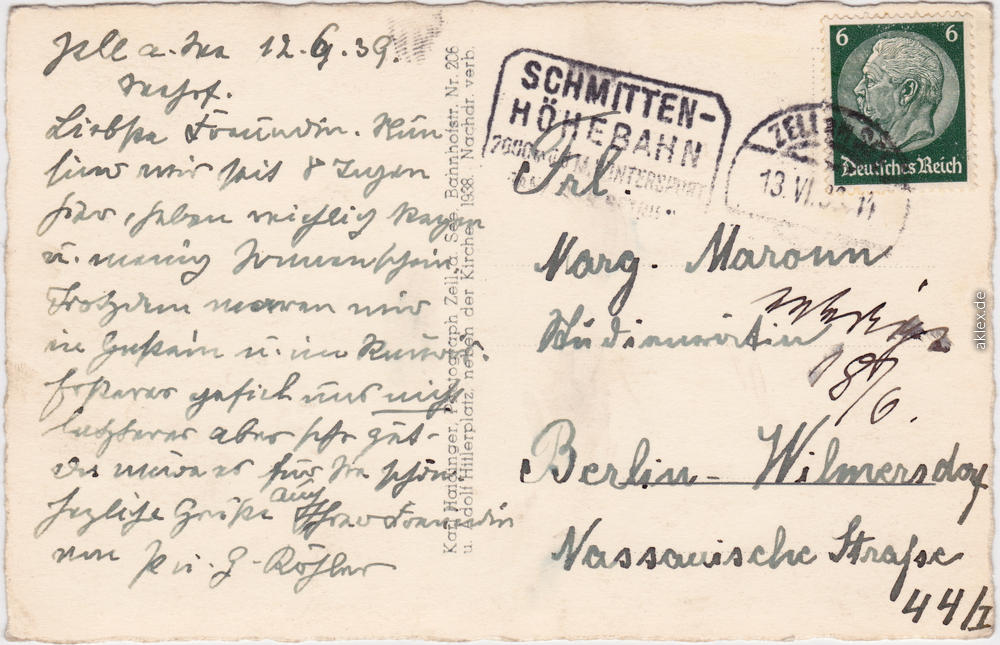 Zell a. See 12.6.39.
Liebste Freundin. Nun
sind wir seit 8 Tagen
hier, haben reichlich Regen
u. wenig Sonnenschein
Trotzdem waren wir
in Gastein u. im
Ersteres gefiel uns nicht
letzteres aber sehr gut.
für Sie schön
herzliche Grüße auch Ihrer Freundin
von
Karl Haidinger, Photograph Zell a. See, Bahnhofstr. Nr. 206
u. Adolf Hitlerplatz, neben der Kirche. 1938. Nachdr. verb.
SCHMITTEN-
HÖHEBAHN
2000m WINTERSPORT
ZELL AM SEE
13.VI.39.11
6 6
Deutsches Reich
Frl.
Marg. Maronn
Studienrätin
18/6.
Berlin-Wilmersdorf
Nassauische Straße
44/I
aklex.de